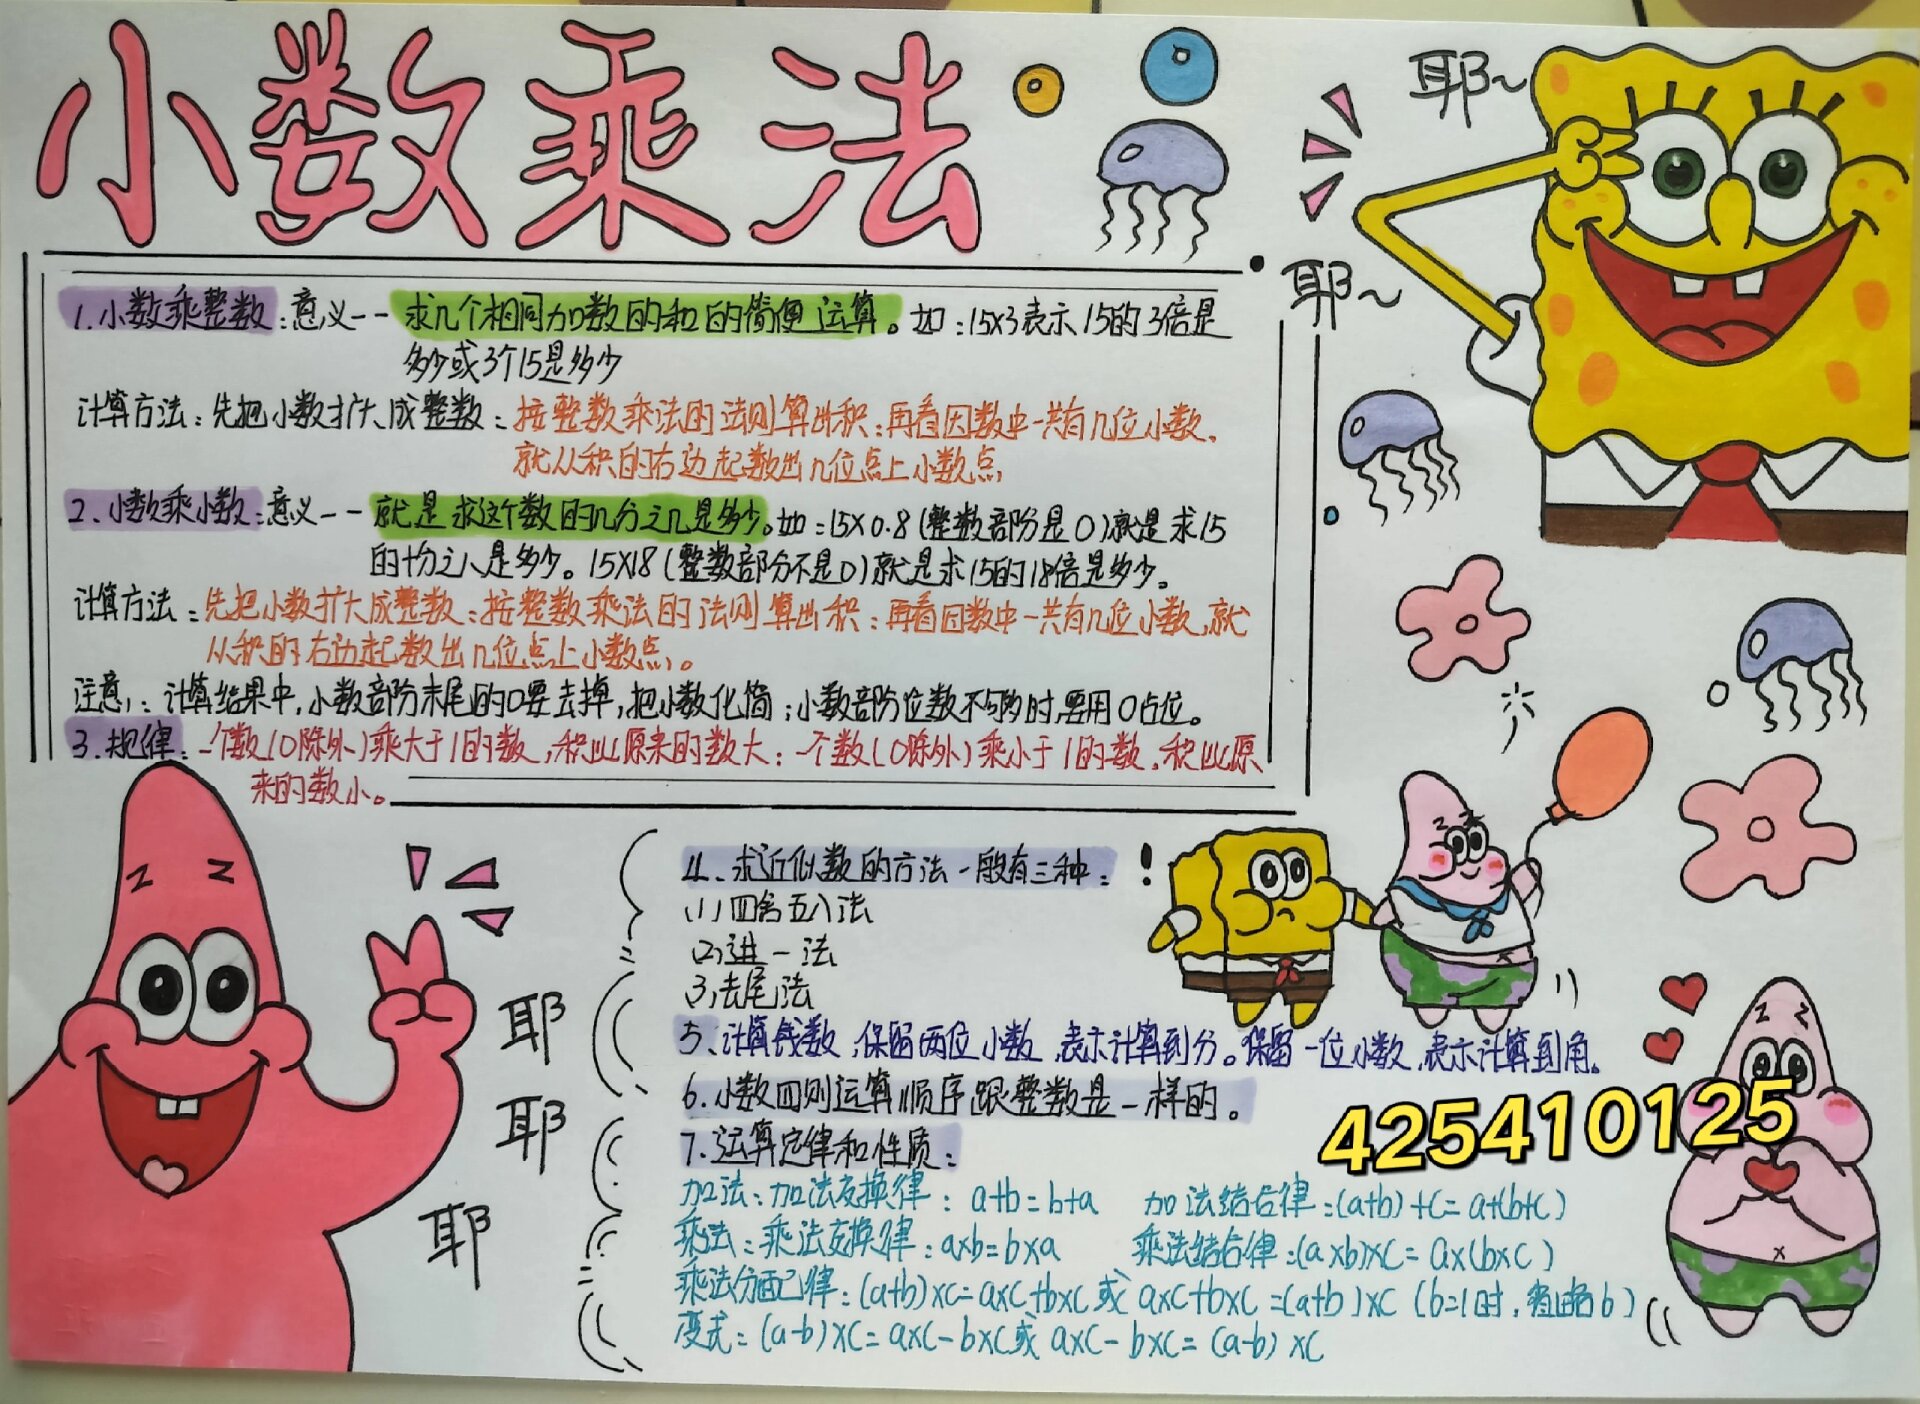 小数乘法
耶~
耶~
1.小数乘整数:意义--求几个相同加数的和的简便运算。如:15x3表示15的3倍是
多少或3个15是多少
计算方法:先把小数扩大成整数:按整数乘法的法则算出积:再看因数中一共有几位小数,
就从积的右边起数出几位点上小数点
2.小数乘小数:意义--就是求这个数的几分之几是多少。如:15X0.8(整数部份是0)就是求15
的十分之八是多少。15X18(整数部分不是0)就是求15的18倍是多少。
计算方法:先把小数扩大成整数:按整数乘法的法则算出积:再看因数中一共有几位小数,就
从积的右边起数出几位点上小数点。
注意:计算结果中,小数部份末尾的0要去掉,把小数化简;小数部份位数不够时,要用0占位。
3.规律:一个数(0除外)乘大于1的数,积比原来的数大;一个数(0除外)乘小于1的数,积比原
来的数小。
4.求近似数的方法一般有三种:
(1)四舍五入法
(2)进一法
(3)去尾法
5、计算钱数,保留两位小数,表示计算到分。保留一位小数,表示计算到角。
6.小数四则运算顺序跟整数是一样的。
7.运算定律和性质:
加法:加法交换律:a+b=b+a 加法结合律:(a+b)+c=a+(b+c)
乘法:乘法交换律:axb=bxa 乘法结合律:(axb)xc=ax(bxc)
乘法分配律:(a+b)xc=axc+bxc或axc+bxc=(a+b)xc(b=1时,省略b)
变式:(a-b)xc=axc-bxc或axc-bxc=(a-b)xc
耶
耶
耶
425410125